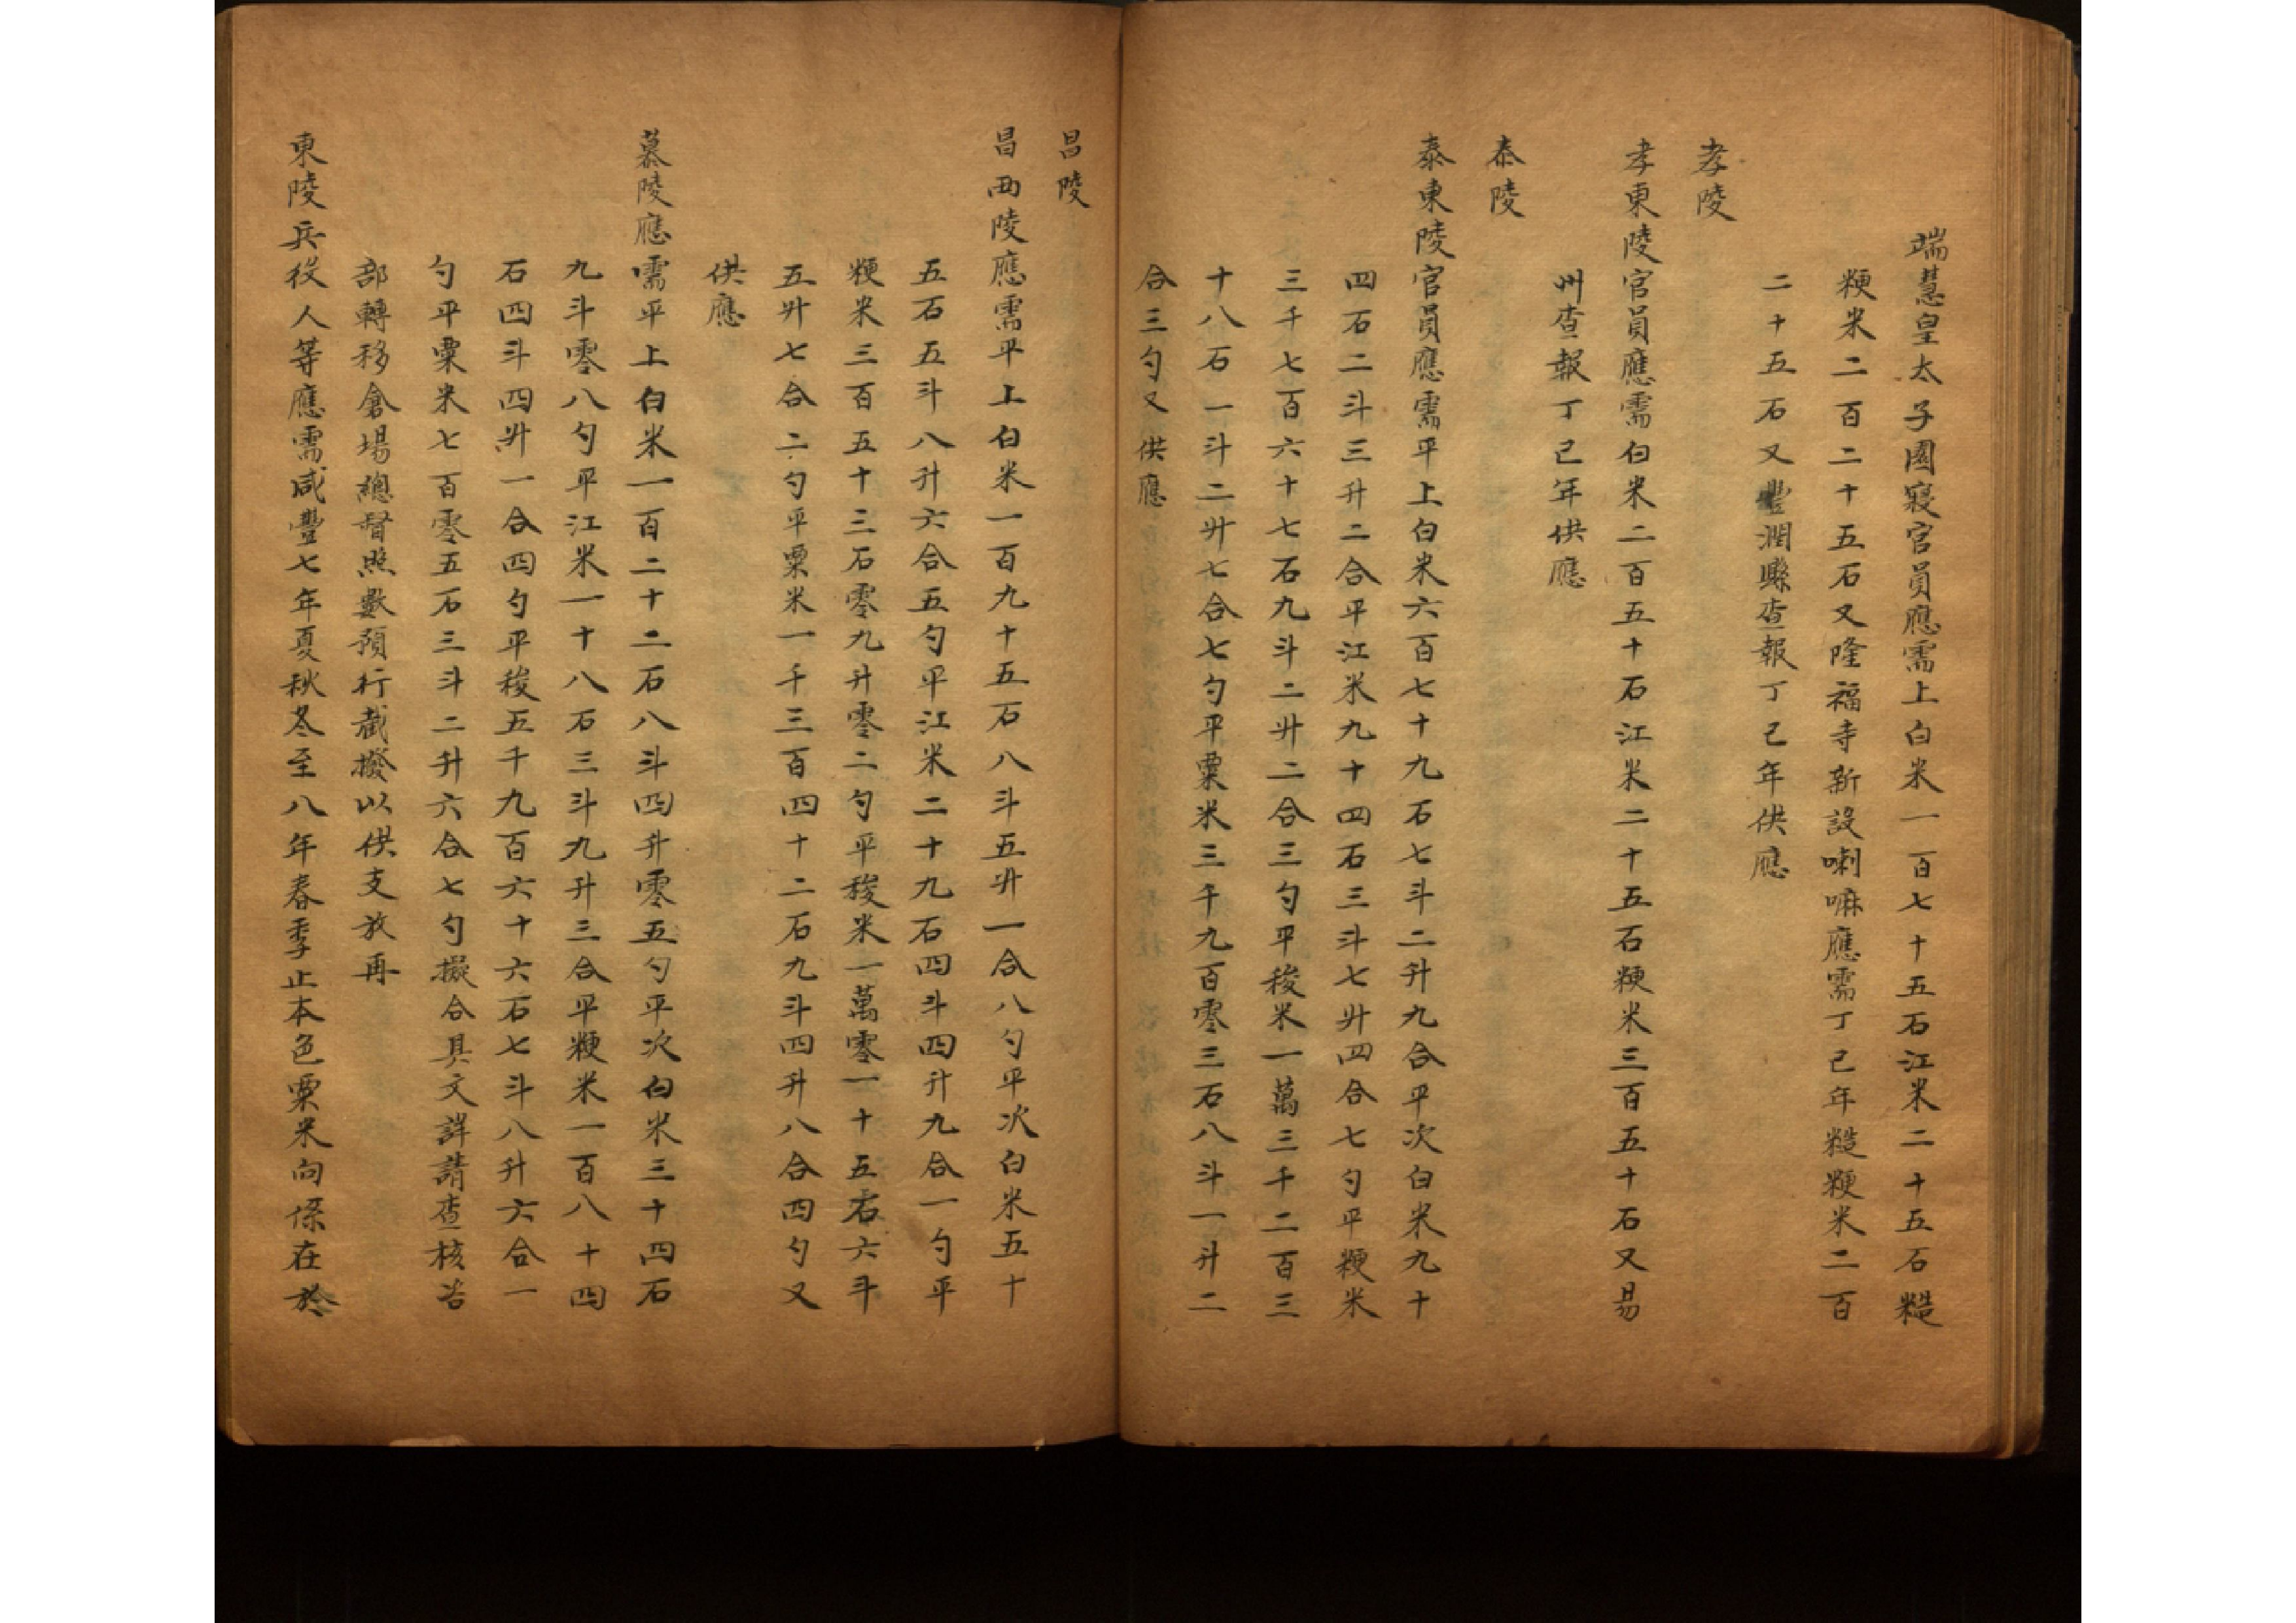 端慧皇太子園寢官員應需上白米一百七十五石江米二十五石糙
粳米二百二十五石又隆福寺新設喇嘛應需丁巳年糙粳米二百
二十五石又豐潤縣查報丁巳年供應
孝陵
孝東陵官員應需白米二百五十石江米二十五石粳米三百五十石又易
州查報丁巳年供應
泰陵
泰東陵官員應需平上白米六百七十九石七斗二升九合平次白米九十
四石二斗三升二合平江米九十四石三斗七升四合七勺平粳米
三千七百六十七石九斗二升二合三勺平稜米一萬三千二百三
十八石一斗二升七合七勺平粟米三千九百零三石八斗一升二
合三勺又供應
昌陵
昌西陵應需平上白米一百九十五石八斗五升一合八勺平次白米五十
五石五斗八升六合五勺平江米二十九石四斗四升九合一勺平
粳米三百五十三石零九升零二勺平稜米一萬零一十五石六斗
五升七合二勺平粟米一千三百四十二石九斗四升八合四勺又
供應
慕陵應需平上白米一百二十二石八斗四升零五勺平次白米三十四石
九斗零八勺平江米一十八石三斗九升三合平粳米一百八十四
石四斗四升一合四勺平稜五千九百六十六石七斗八升六合一
勺平粟米七百零五石三斗二升六合七勺擬合具文詳請查核咨
部轉移倉場總督照數預行截撥以供支放再
東陵兵役人等應需咸豐七年夏秋冬至八年春季止本色粟米向係在於